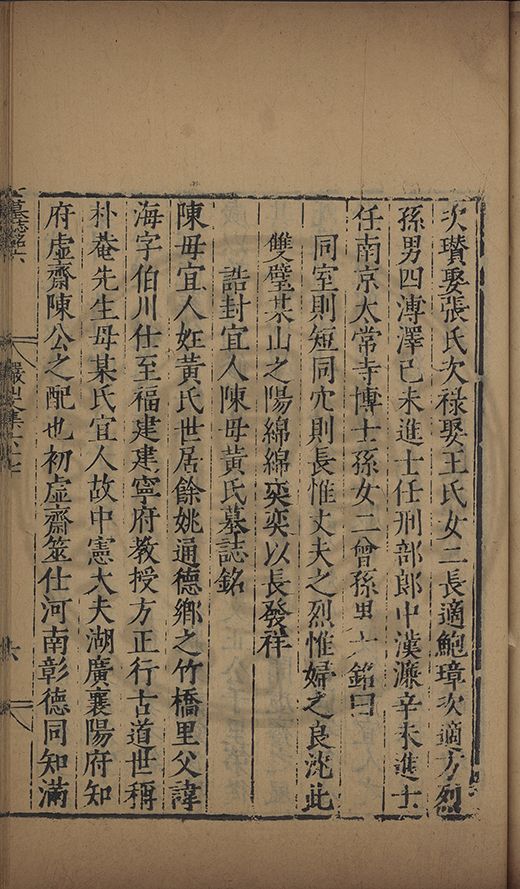 次瓚娶張氏次祿娶王氏女二長適鮑璋次適方烈
孫男四溥澤己未進士任刑部郎中漢濂辛未進士
任南京太常寺博士孫女二曾孫男六銘曰
同室則短同穴則長惟丈夫之烈惟婦之良沈此
雙璧某山之陽綿綿奕奕以長發祥
誥封宜人陳母黃氏墓誌銘
陳母宜人姓黃氏世居餘姚通德鄉之竹橋里父諱
海字伯川仕至福建建寧府教授方正行古道世稱
朴菴先生母某氏宜人故中憲大夫湖廣襄陽府知
府虛齋陳公之配也初虛齋筮仕河南彰德同知滿
墓誌銘六
六